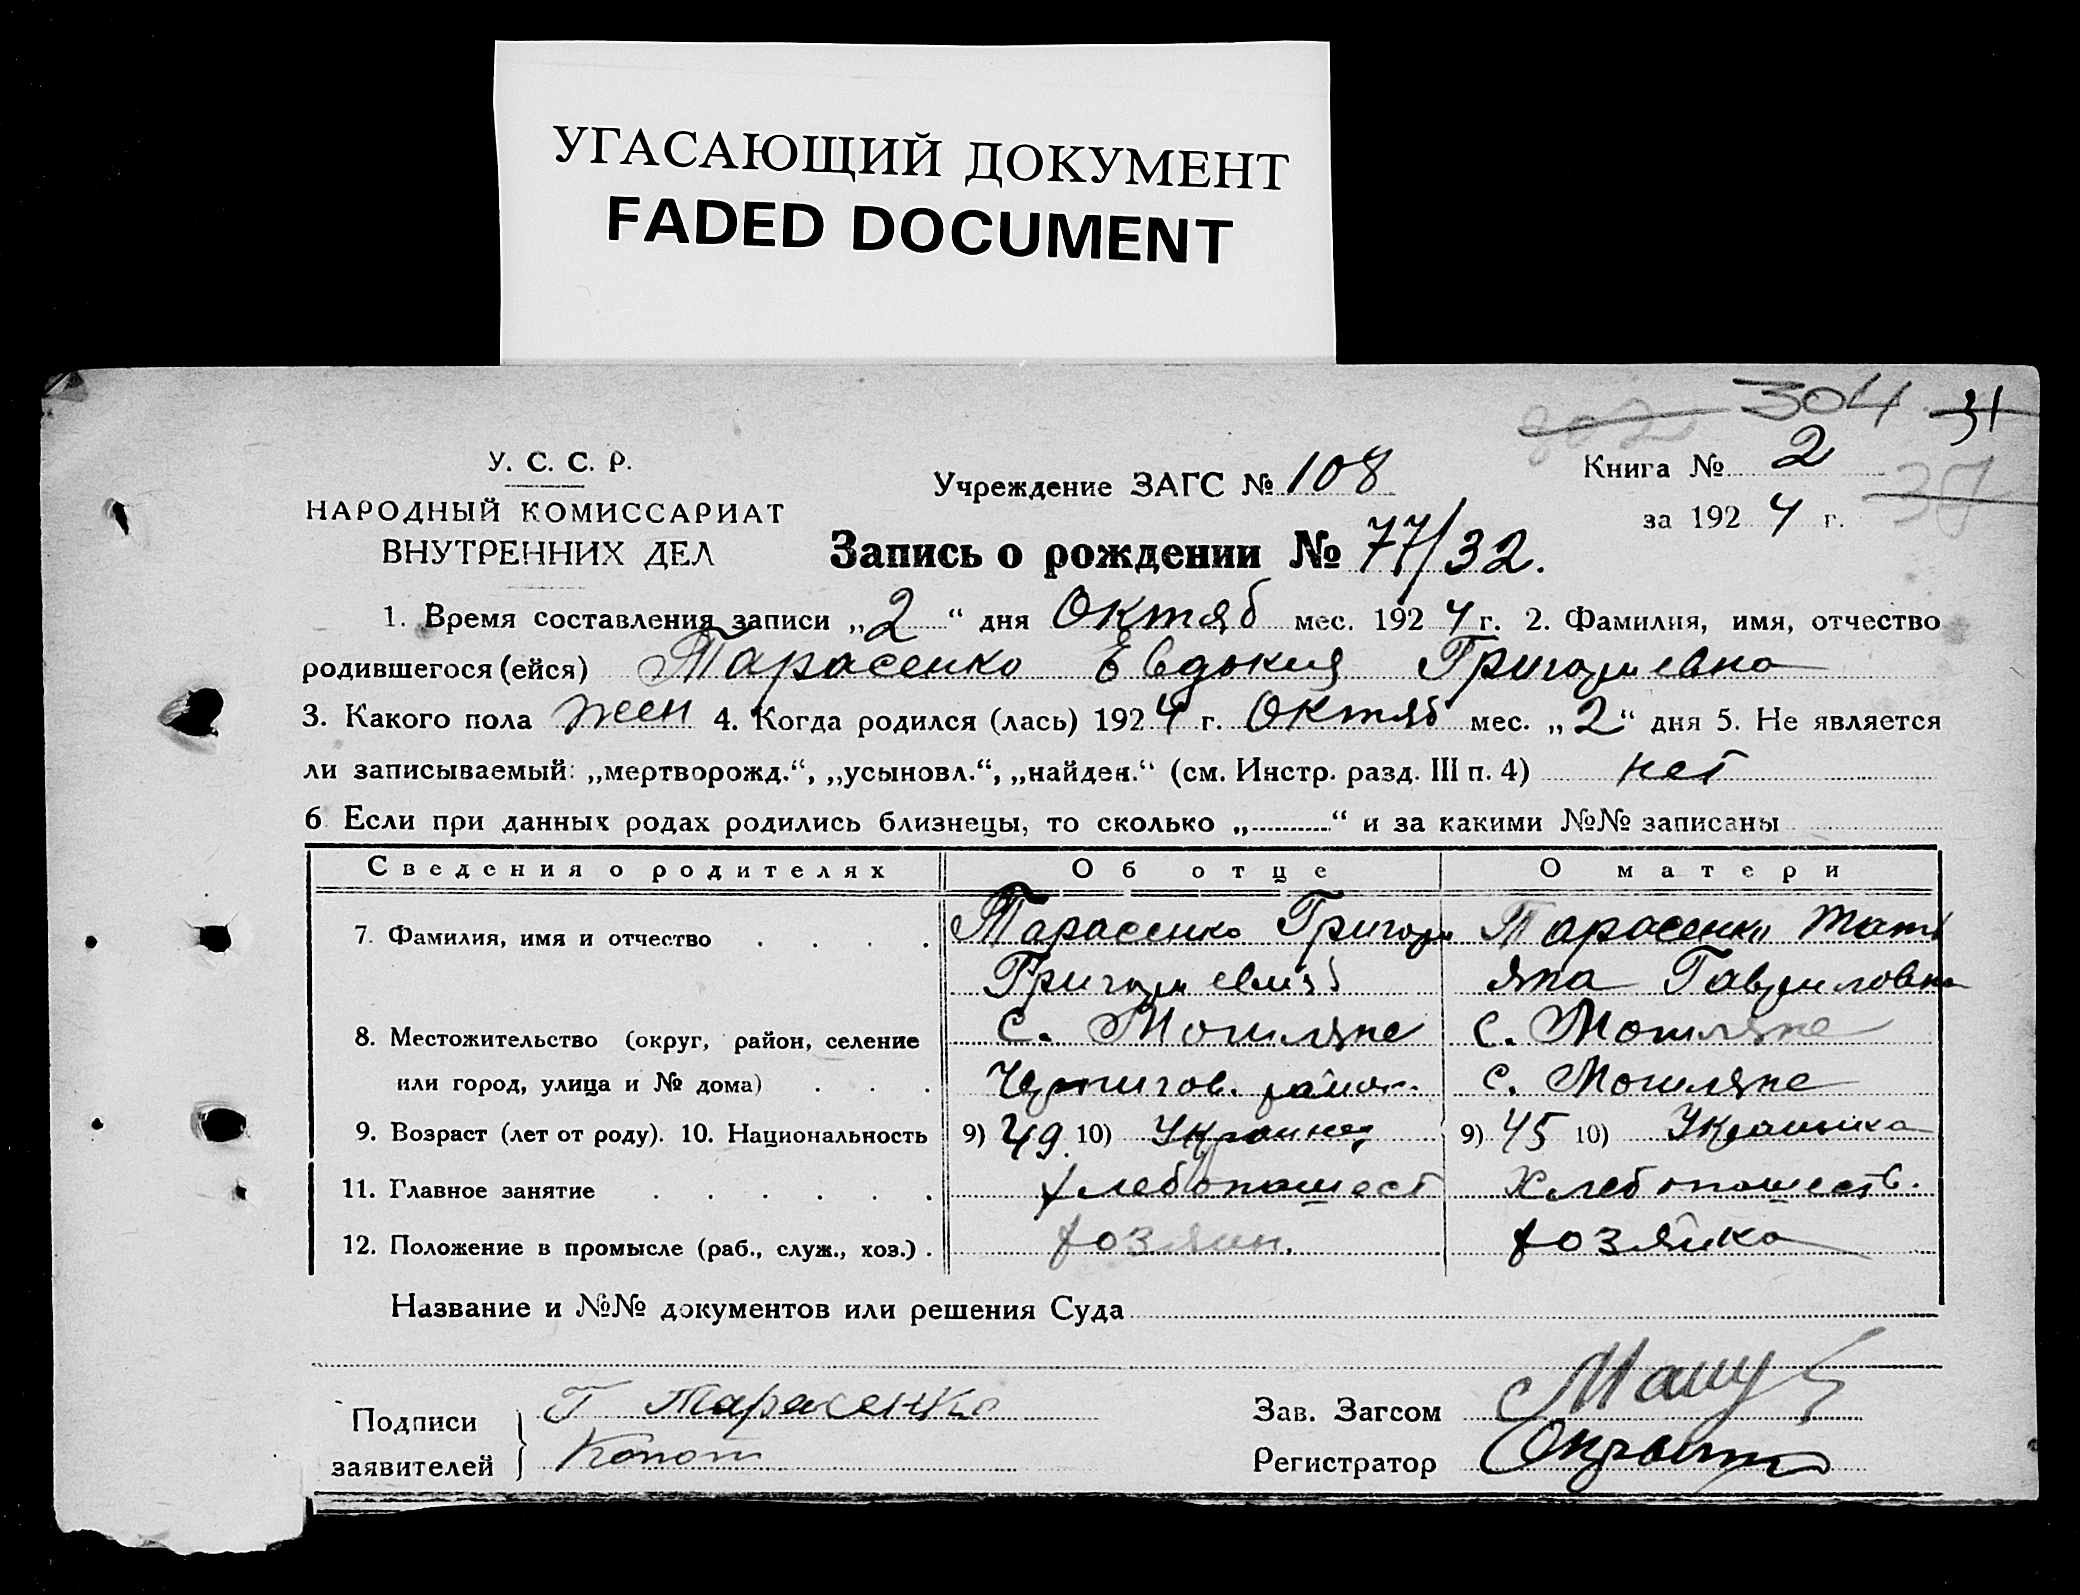 УГАСАЮЩИЙ ДОКУМЕНТ
FADED DOCUMENT
302 304 31
У. С. С. Р.
НАРОДНЫЙ КОМИССАРИАТ
ВНУТРЕННИХ ДЕЛ
Учреждение ЗАГС № 108
Книга № 2
за 1924 г.
Запись о рождении № 77/32.
1. Время составления записи „2“ дня Октяб мес. 1924 г. 2. Фамилия, имя, отчество
родившегося (ейся) Тарасенко Евдокия Григорьевна
3. Какого пола жен 4. Когда родился (лась) 1924 г. Октяб мес. „2“ дня 5. Не является
ли записываемый: „мертворожд.“, „усыновл.“, „найден.“ (см. Инстр. разд. III п. 4) нет
6 Если при данных родах родились близнецы, то сколько „..........“ и за какими №№ записаны
Сведения о родителях Об отце О матери
7. Фамилия, имя и отчество . . . . Тарасенко Григори Тарасенко Тать
Григориевич яна Гавриловна
8. Местожительство (округ, район, селение с. Могиляне с. Могиляне
или город, улица и № дома) . . . Чернигов. район. с. Могиляне
9. Возраст (лет от роду). 10. Национальность 9) 49. 10) Украинец 9) 45 10) Украинка
11. Главное занятие . . . . . . хлебопашест Хлебопашеств.
12. Положение в промысле (раб., служ., хоз.) . хозяин. хозяйка
Название и №№ документов или решения Суда
Подписи заявителей } Г Тарасенко
Зав. Загсом
Регистратор